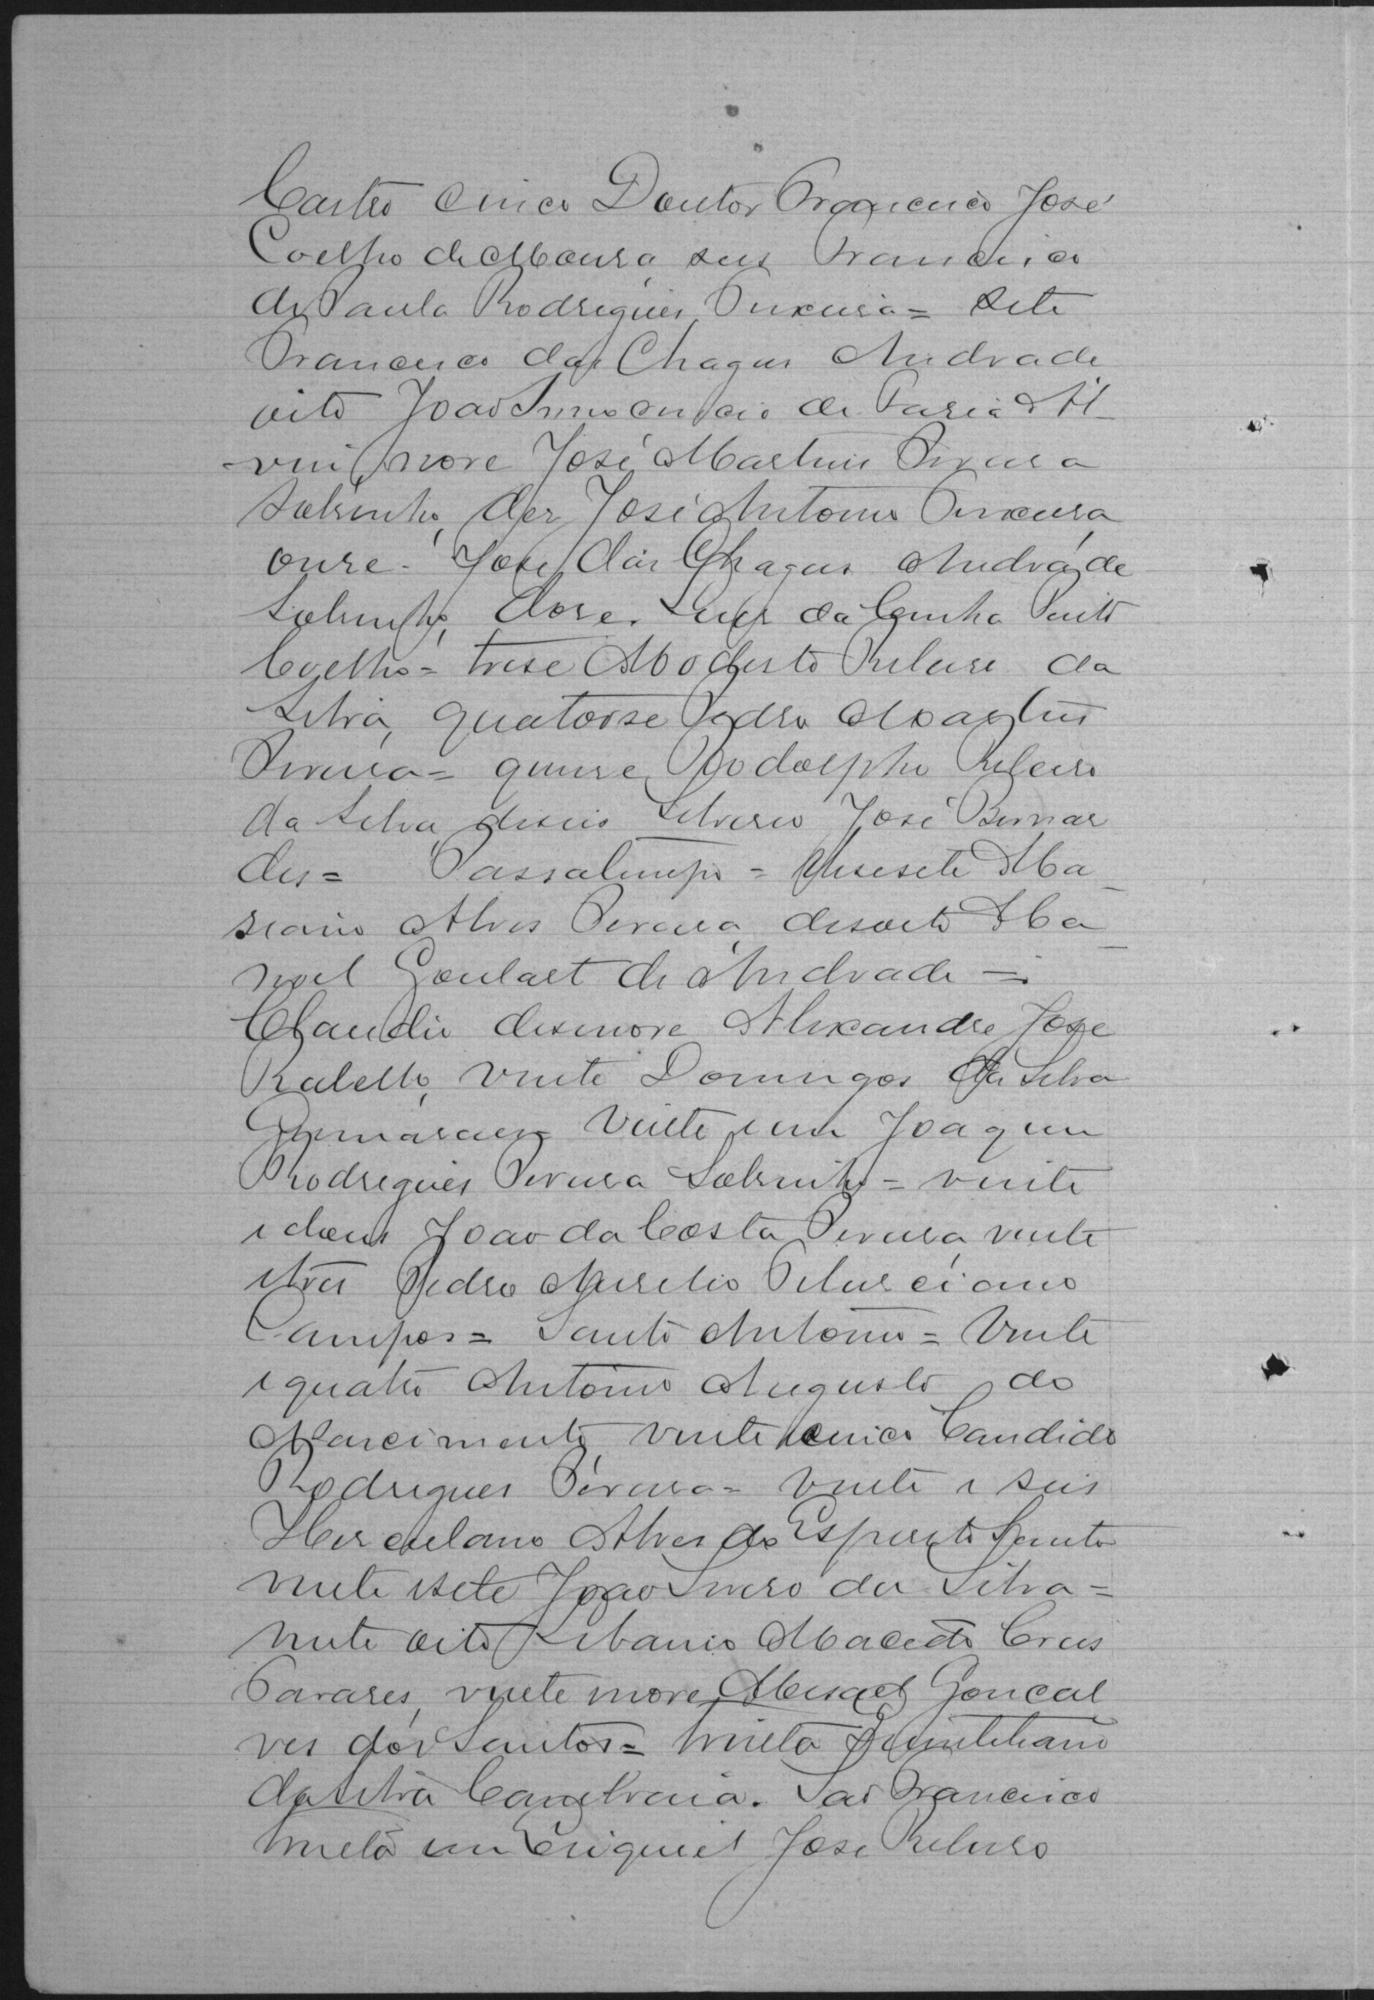 Castro cinco Doutor Francisco José
Coelho de Moura, seis Francisco
de Paula Rodrigues Teixeira = sete
Francisco das Chagas Andrade
oito João Innocencio de Faria Al-
ves, nove José Martins Pereira
Sobrinho, dez José Antonio Teixeira
onze - José das Chagas Andrade
Sobrinho, doze. Luiz da Cunha Pinto
Coelho = trese Modesto Ribeiro da
Silva, quatorse Pedro Martins
Pereira = quinse Rodolpho Ribeiro
da Silva, deseis Silverio José Bernar
des = Passatempo = desesete Ma-
riano Alves Pereira, desoito Ma-
noel Goulart de Andrade =
Claudio desenove Alexandre José
Rabello, vinte Domingos da Silva
Guimaraes vinte e um Joaquim
Rodrigues Pereira Sobrinho = vinte
e dous João da Costa Pereira vinte
e tres Pedro Aurelio
Campos = Santo Antonio = Vinte
e quatro Antonio Augusto do
Nascimento, vinte cinco Candido
Rodrigues Pereira = vinte e seis
Herculano Alves do Espirito Santo
vinte e sete João da Silva =
vinte oito Libanio Macedo Cruz
Tavares, vinte nove Misael Goncal
ves dos Santos = trinta Quintiliano
da Silva. São Francisco
trinta um Esiquiel José Ribeiro